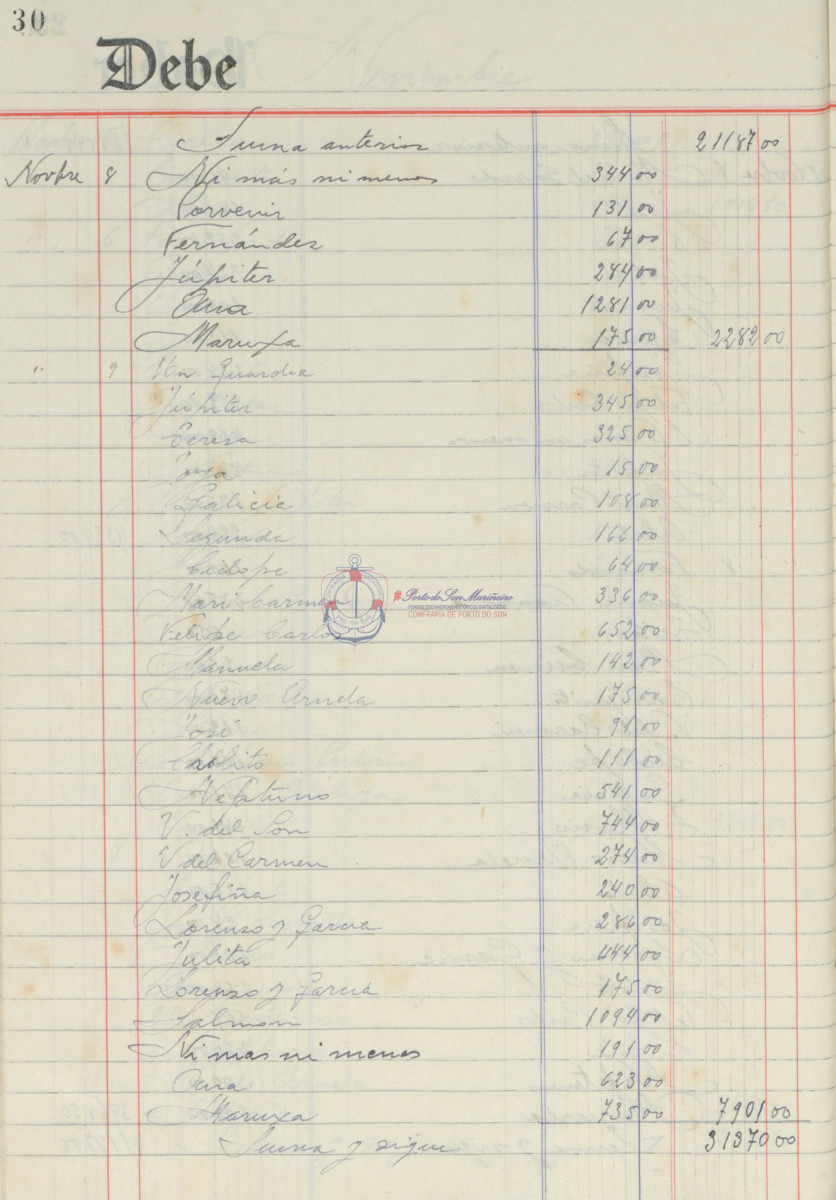 30
Debe
Suma anterior 21187 00
Novbre 8 Ni más ni menos 344 00
Porvenir 131 00
Fernández 67 00
Júpiter 284 00
1281 00
Maruxa 175 00 2282 00
" 9 Guardia 24 00
Júpiter 345 00
Teresa 325 00
15 00
Galicia 108 00
Segunda 166 00
64 00
Mari Carmen 336 00
Felipe Carlos 652 00
Manuela 142 00
Nuevo 175 00
José 91 00
111 00
Neptuno 541 00
V. del Son 744 00
V del Carmen 274 00
Josefina 240 00
Lorenzo y Garcia 286 00
Julita 444 00
Lorenzo y Garcia 175 00
Salmon 1094 00
Ni mas ni menos 191 00
623 00
Maruxa 735 00 7901 00
Suma y sigue 31370 00
#PortodoSonMariñeiro
CONFRARIA DE PORTO DO SON